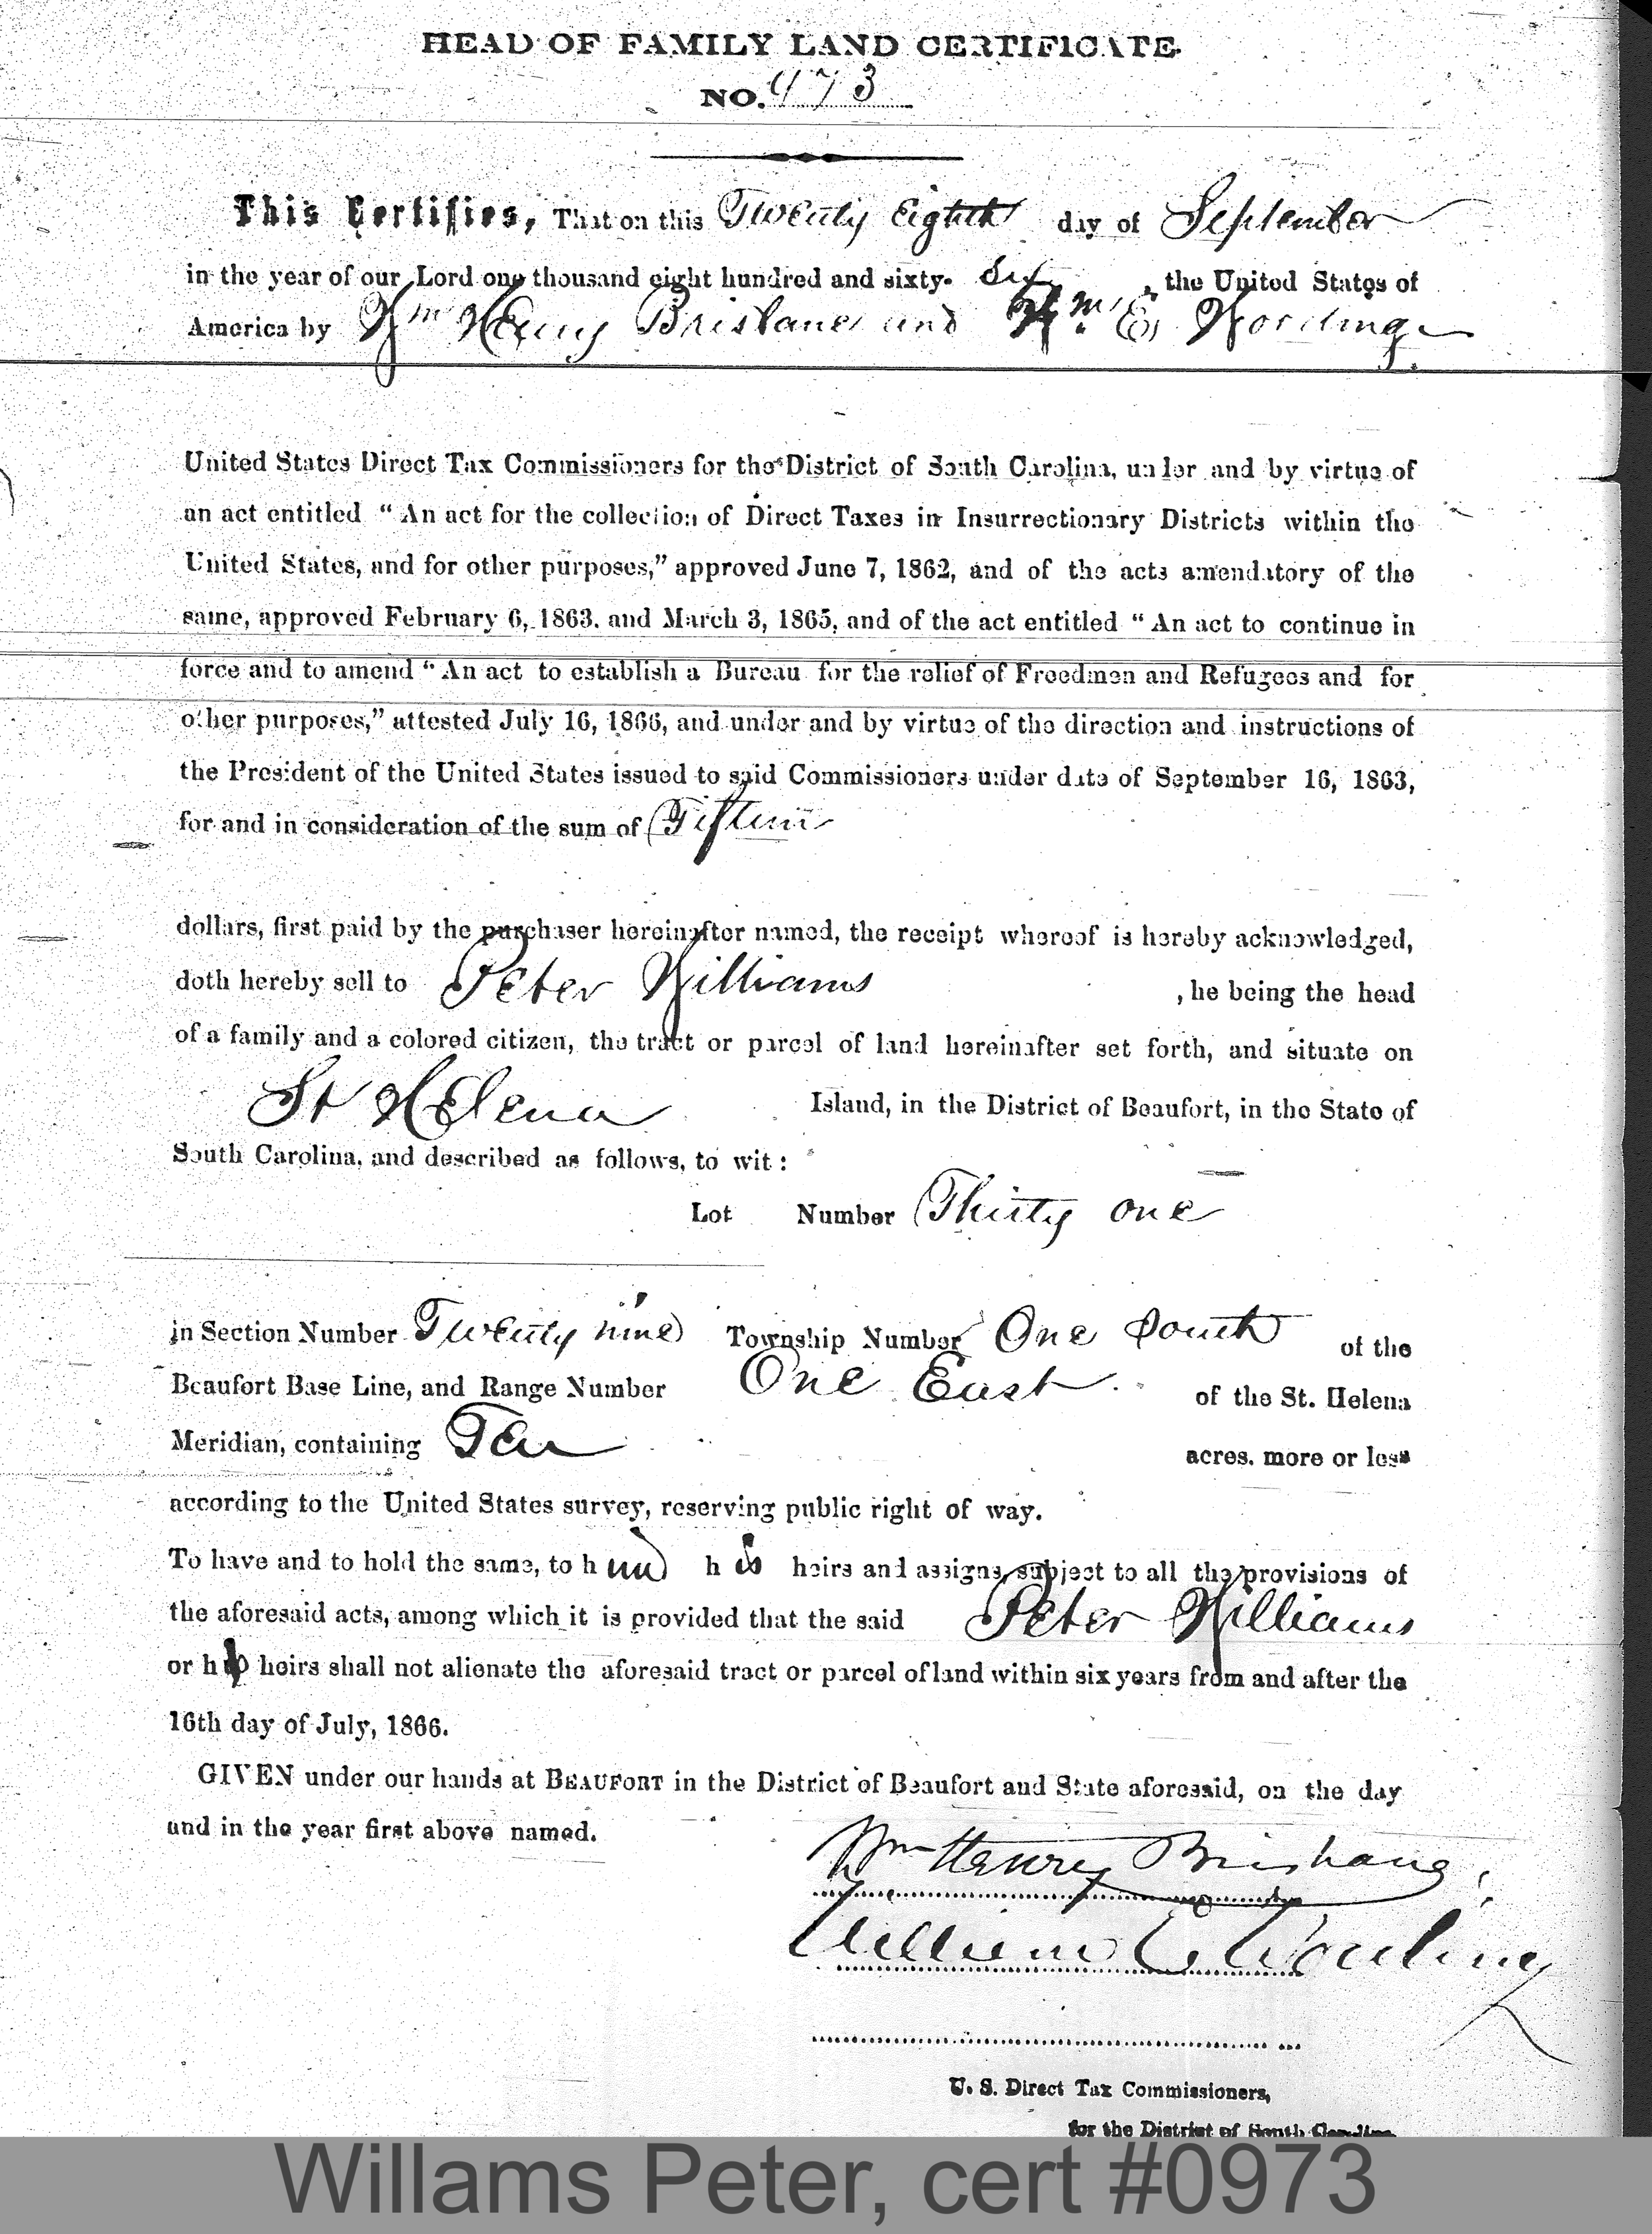 HEAD OF FAMILY LAND CERTIFICATE.
NO. 973
This Certifies, That on this Twenty Eighth day of September
in the year of our Lord one thousand eight hundred and sixty- Six, the United States of
America by Wm Henry Brisbane and Wm. E. Wording
United States Direct Tax Commissioners for the District of South Carolina, under and by virtue of
an act entitled “An act for the collection of Direct Taxes in Insurrectionary Districts within the
United States, and for other purposes,” approved June 7, 1862, and of the acts amendatory of the
same, approved February 6, 1863, and March 3, 1865, and of the act entitled “An act to continue in
force and to amend “An act to establish a Bureau for the relief of Freedmen and Refugees and for
other purposes,” attested July 16, 1866, and under and by virtue of the direction and instructions of
the President of the United States issued to said Commissioners under date of September 16, 1863,
for and in consideration of the sum of Fifteen
dollars, first paid by the purchaser hereinafter named, the receipt whereof is hereby acknowledged,
doth hereby sell to Peter Williams, he being the head
of a family and a colored citizen, the tract or parcel of land hereinafter set forth, and situate on
St Helena Island, in the District of Beaufort, in the State of
South Carolina, and described as follows, to wit:
Lot Number Thirty one
in Section Number Twenty nine Township Number One South of the
Beaufort Base Line, and Range Number One East of the St. Helena
Meridian, containing Ten acres, more or less
according to the United States survey, reserving public right of way.
To have and to hold the same, to him his heirs and assigns, subject to all the provisions of
the aforesaid acts, among which it is provided that the said Peter Williams
or his heirs shall not alienate the aforesaid tract or parcel of land within six years from and after the
16th day of July, 1866.
GIVEN under our hands at BEAUFORT in the District of Beaufort and State aforesaid, on the day
and in the year first above named.
Wm Henry Brisbane
William E Wording
U. S. Direct Tax Commissioners,
for the District of South Carolina.
Willams Peter, cert #0973